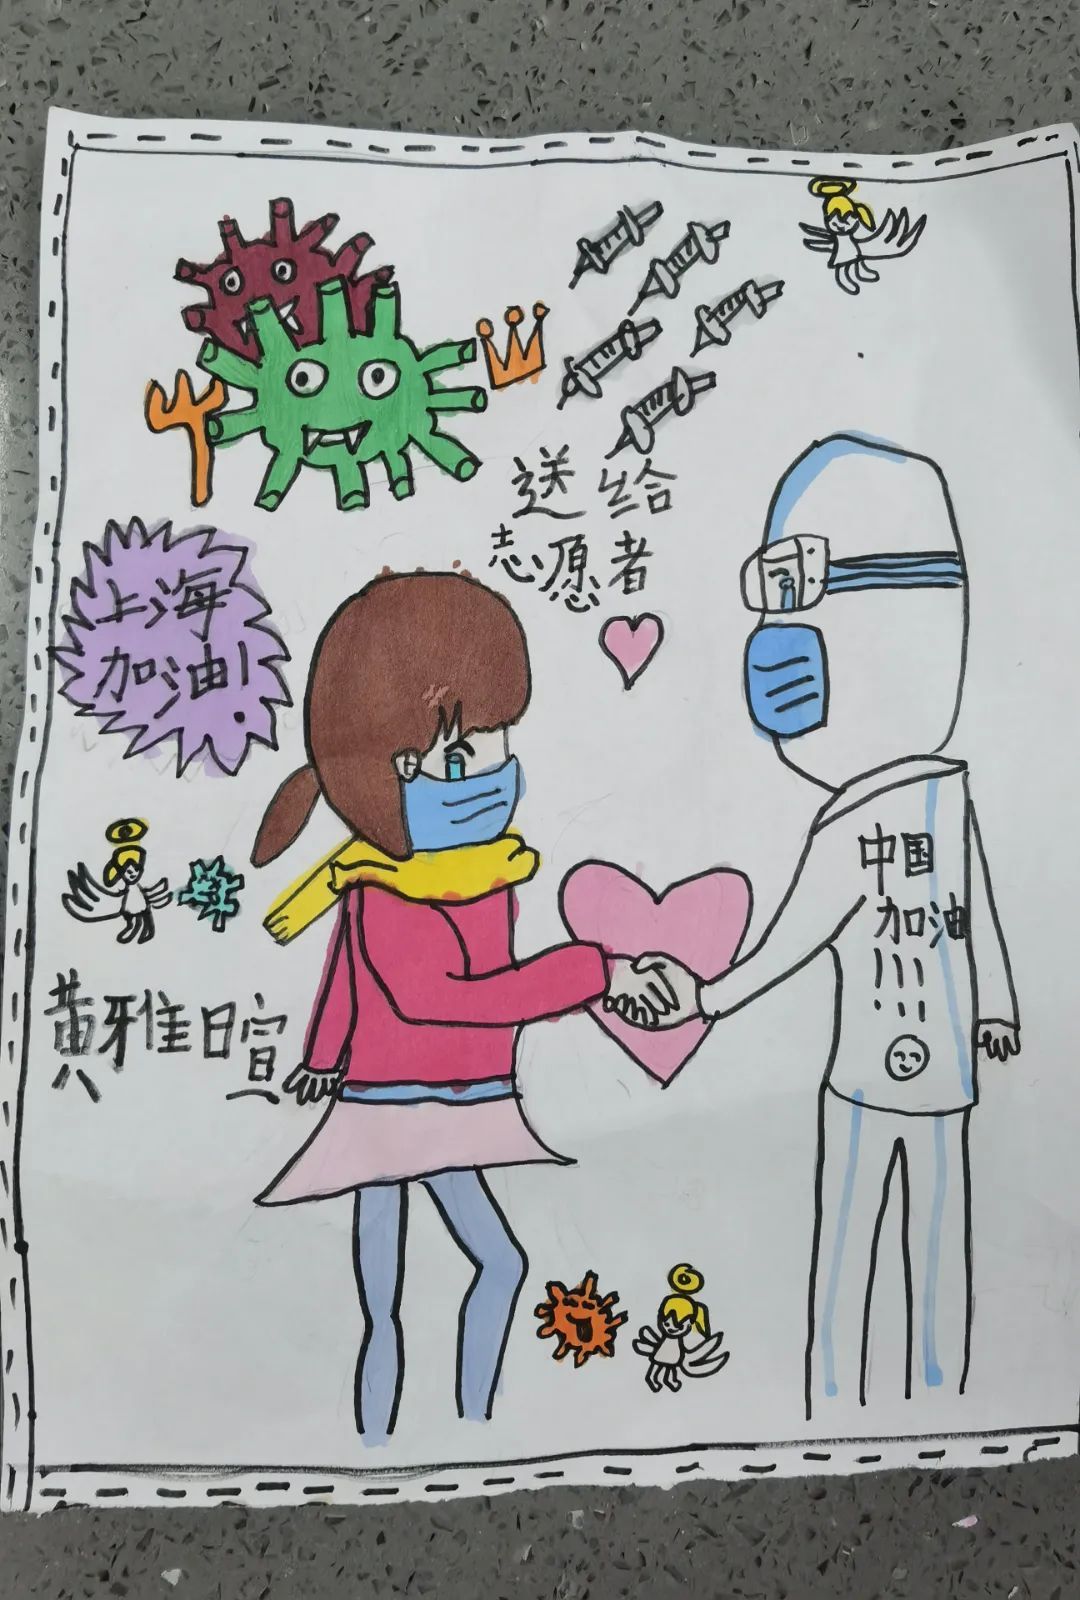 送给
志愿者
上海
加油!
中国
加油
!!!
黄雅日宣